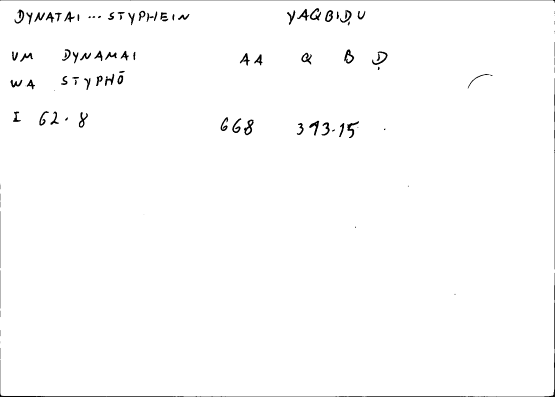 DYNATAI ... STYPHEIN YAQBIḌU
VM DYNAMAI AA Q B Ḍ
WA STYPHŌ
I 62.8 668 393.15